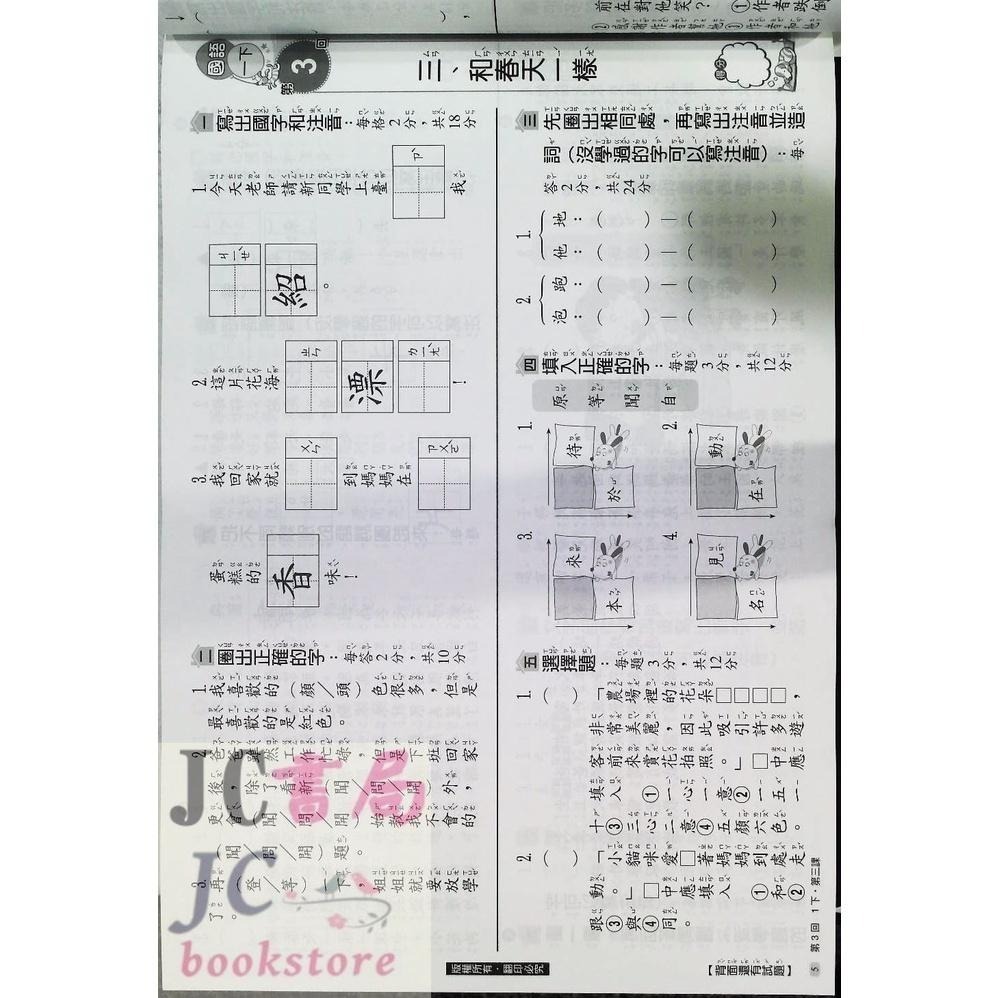 前在對他笑？ ①作者跌倒
國語 一下
第3回
三、和春天一樣
得分
一 寫出國字和注音：每格2分，共18分
1. 今天老師請新同學上臺 ㄗˋ 我
ㄐㄧㄝˋ 紹。
2. 這片花海 ㄓㄣ 漂 ㄌㄧㄤˋ ！
3. 我回家就 ㄨㄣˊ 到媽媽在 ㄗㄨㄛˋ
蛋糕的 香 味！
二 圈出正確的字：每答2分，共10分
1. 我喜歡的（顏／頭）色很多，但是
最喜歡的是紅色。
2. 爸爸雖然工作忙碌，但是下班回家
後，除了看新（聞／問／開）外，
更會（聞／問／開）始教我不會的
（聞／問／開）題。
3. 再（登／等）一下，姐姐就要放學
了。
三 先圈出相同處，再寫出注音並造
詞（沒學過的字可以寫注音）：每
答2分，共24分
1. 地：（ ）—（ ）
他：（ ）—（ ）
2. 跑：（ ）—（ ）
泡：（ ）—（ ）
四 填入正確的字：每題3分，共12分
原 等 聞 自
1. 待 於
2. 動 在
3. 來 本
4. 見 名
五 選擇題：每題3分，共12分
1. （ ）「農場裡的花朵□□□□，
非常美麗，因此吸引許多遊
客前來賞花拍照。」□中應
填入 ①一心一意②一五一
十③三心二意④五顏六色。
2. （ ）「小貓咪愛□著媽媽到處走
動。」□中應填入 ①和②
跟③與④同。
版權所有‧翻印必究
【背面還有試題】
5 第3回 1下‧第三課
JC書局
JC
bookstore